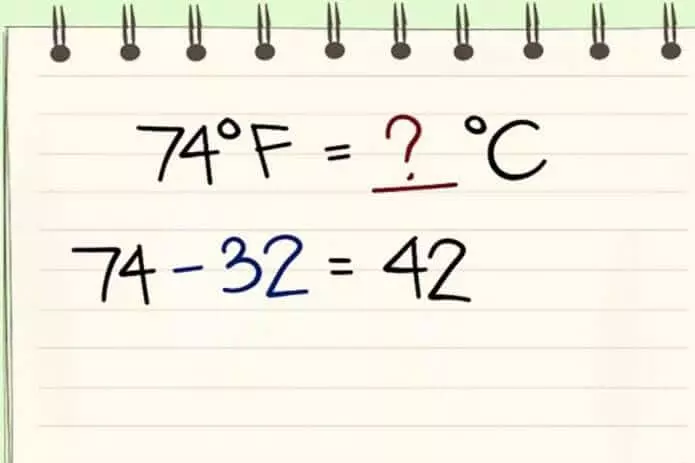 74°F = ? °C
74 - 32 = 42